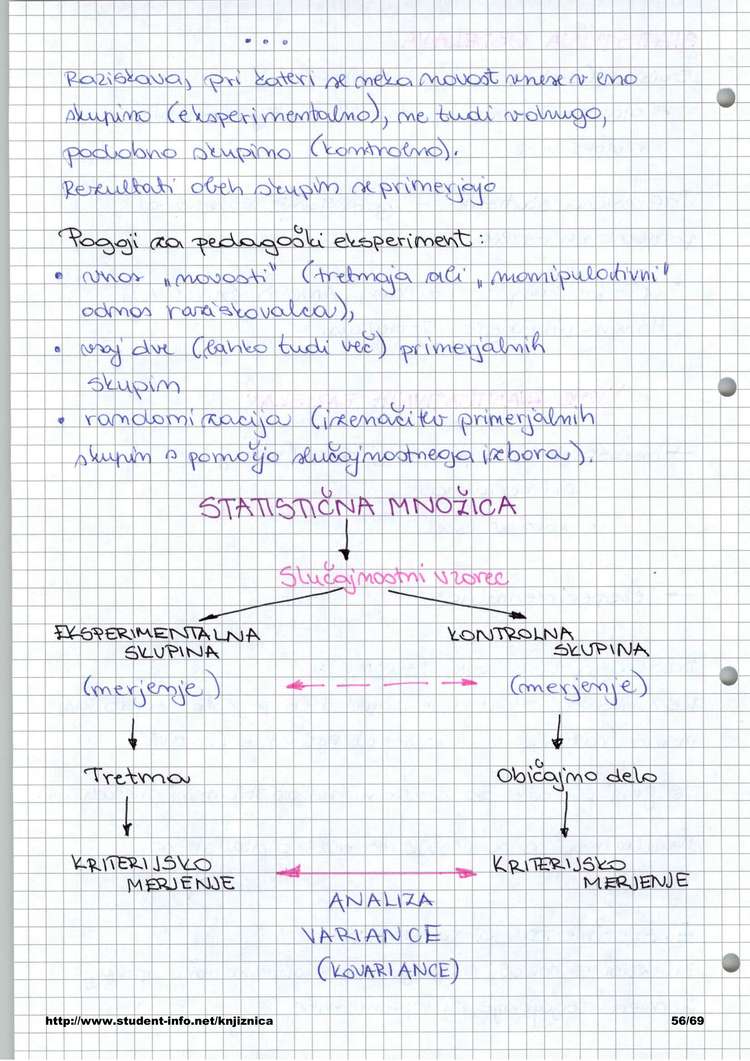 Raziskava, pri kateri se neka novost vnese v eno
skupino (eksperimentalno), ne tudi v drugo,
podobno skupino (kontrolno).
Rezultati obeh skupin se primerjajo
Pogoji za pedagoški eksperiment:
• vnos „novosti" (tretmaja ali „manipulativni"
odnos raziskovalca),
• vsaj dve (lahko tudi več) primerjalnih
skupin
• randomizacija (izenačitev primerjalnih
skupin s pomočjo slučajnostnega izbora).
STATISTIČNA MNOŽICA
Slučajnostni vzorec
EKSPERIMENTALNA KONTROLNA
SKUPINA SKUPINA
(merjenje) (merjenje)
Tretma Običajno delo
KRITERIJSKO KRITERIJSKO
MERJENJE MERJENJE
ANALIZA
VARIANCE
(KOVARIANCE)
http://www.student-info.net/knjiznica 56/69